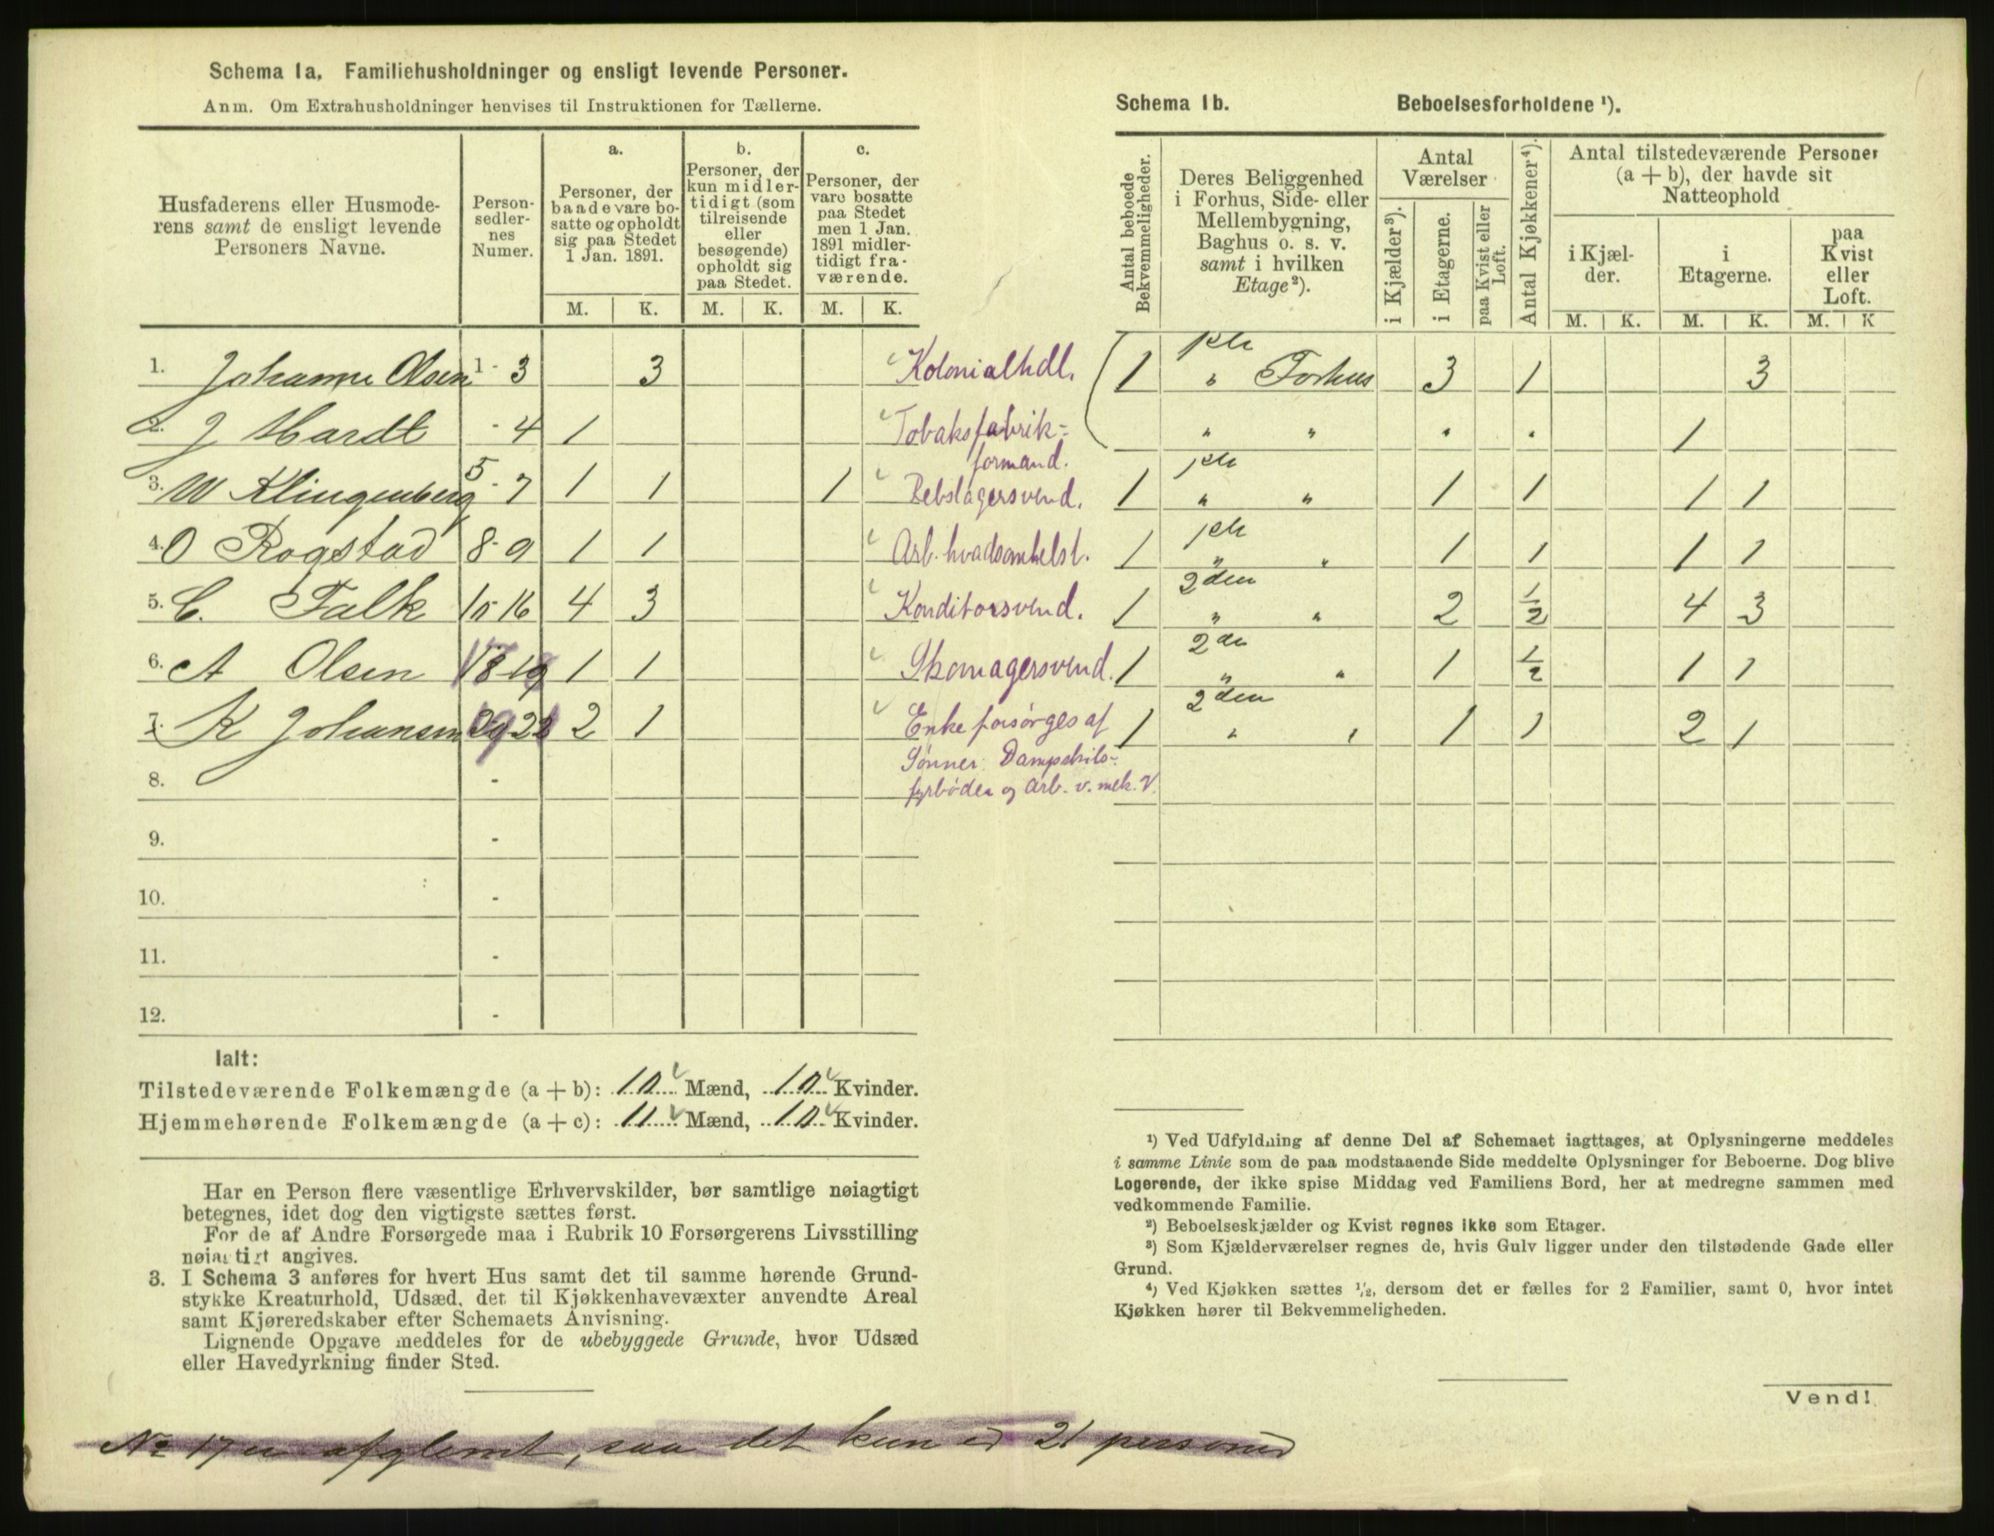 Schema 1a. Familiehusholdninger og ensligt levende Personer.
Anm. Om Extrahusholdninger henvises til Instruktionen for Tællerne.
Husfaderens eller Husmoderens samt de ensligt levende Personers Navne.
Person-
sedler-
nes
Numer.
a.
Personer, der
baade vare bo-
satte og opholdt
sig paa Stedet
1 Jan. 1891.
b.
Personer, der
kun midler-
tidigt (som
tilreisende
eller
besøgende)
opholdt sig
paa Stedet.
c.
Personer, der
vare bosatte
paa Stedet
men 1 Jan.
1891 midler-
tidigt fra-
værende.
M. K. M. K. M. K.
1. Johanne Olsen 1 - 3 3 Kolonialhdl.
2. J Hardt - 4 1 Tobaksfabrik-
formand.
3. W Klingenberg 5 - 7 1 1 1 Rebslagersvend.
4. O Rogstad 8 - 9 1 1 Arb. hvadsomhelst.
5. C. Falk 10 16 4 3 Konditorsvend.
6. A Olsen 1 1 Skomagersvend.
7. K Johansen 2 1 Enke forsørges af
Sønner: Dampskibs-
fyrbøder og Arb. v. mek. V.
8. -
9. -
10. -
11. -
12. -
Ialt:
Tilstedeværende Folkemængde (a + b): 10 Mænd, 10 Kvinder.
Hjemmehørende Folkemængde (a + c): 11 Mænd, 10 Kvinder.
Har en Person flere væsentlige Erhvervskilder, bør samtlige nøiagtigt
betegnes, idet dog den vigtigste sættes først.
For de af Andre Forsørgede maa i Rubrik 10 Forsørgerens Livsstilling
nøiagtigt angives.
3. I Schema 3 anføres for hvert Hus samt det til samme hørende Grund-
stykke Kreaturhold, Udsæd, det til Kjøkkenhavevæxter anvendte Areal
samt Kjøreredskaber efter Schemaets Anvisning.
Lignende Opgave meddeles for de ubebyggede Grunde, hvor Udsæd
eller Havedyrkning finder Sted.
No 17 er afglemt, saa det kun er 21 personer
Schema 1b. Beboelsesforholdene ¹).
Antal beboede
Bekvemmeligheder.
Deres Beliggenhed
i Forhus, Side- eller
Mellembygning,
Baghus o. s. v.
samt i hvilken
Etage ²).
Antal
Værelser
i Kjælder ³).
i Etagerne.
paa Kvist eller
Loft.
Antal Kjøkkener ⁴).
Antal tilstedeværende Personer
(a + b), der havde sit
Natteophold
i Kjæl-
der.
i
Etagerne.
paa
Kvist
eller
Loft.
M. K. M. K. M. K
1 " Forhus 3 1 3
" " " " 1
1 " " 1 1 1 1
1 " " 1 1 1 1
2den
1 " " 2 1/2 4 3
2den
1 " " 1 1/2 1 1
2den
1 " " 1 1 2 1
¹) Ved Udfyldning af denne Del af Schemaet iagttages, at Oplysningerne meddeles
i samme Linie som de paa modstaaende Side meddelte Oplysninger for Beboerne. Dog blive
Logerende, der ikke spise Middag ved Familiens Bord, her at medregne sammen med
vedkommende Familie.
²) Beboelseskjælder og Kvist regnes ikke som Etager.
³) Som Kjælderværelser regnes de, hvis Gulv ligger under den tilstødende Gade eller
Grund.
⁴) Ved Kjøkken sættes ¹/₂, dersom det er fælles for 2 Familier, samt 0, hvor intet
Kjøkken hører til Bekvemmeligheden.
Vend!